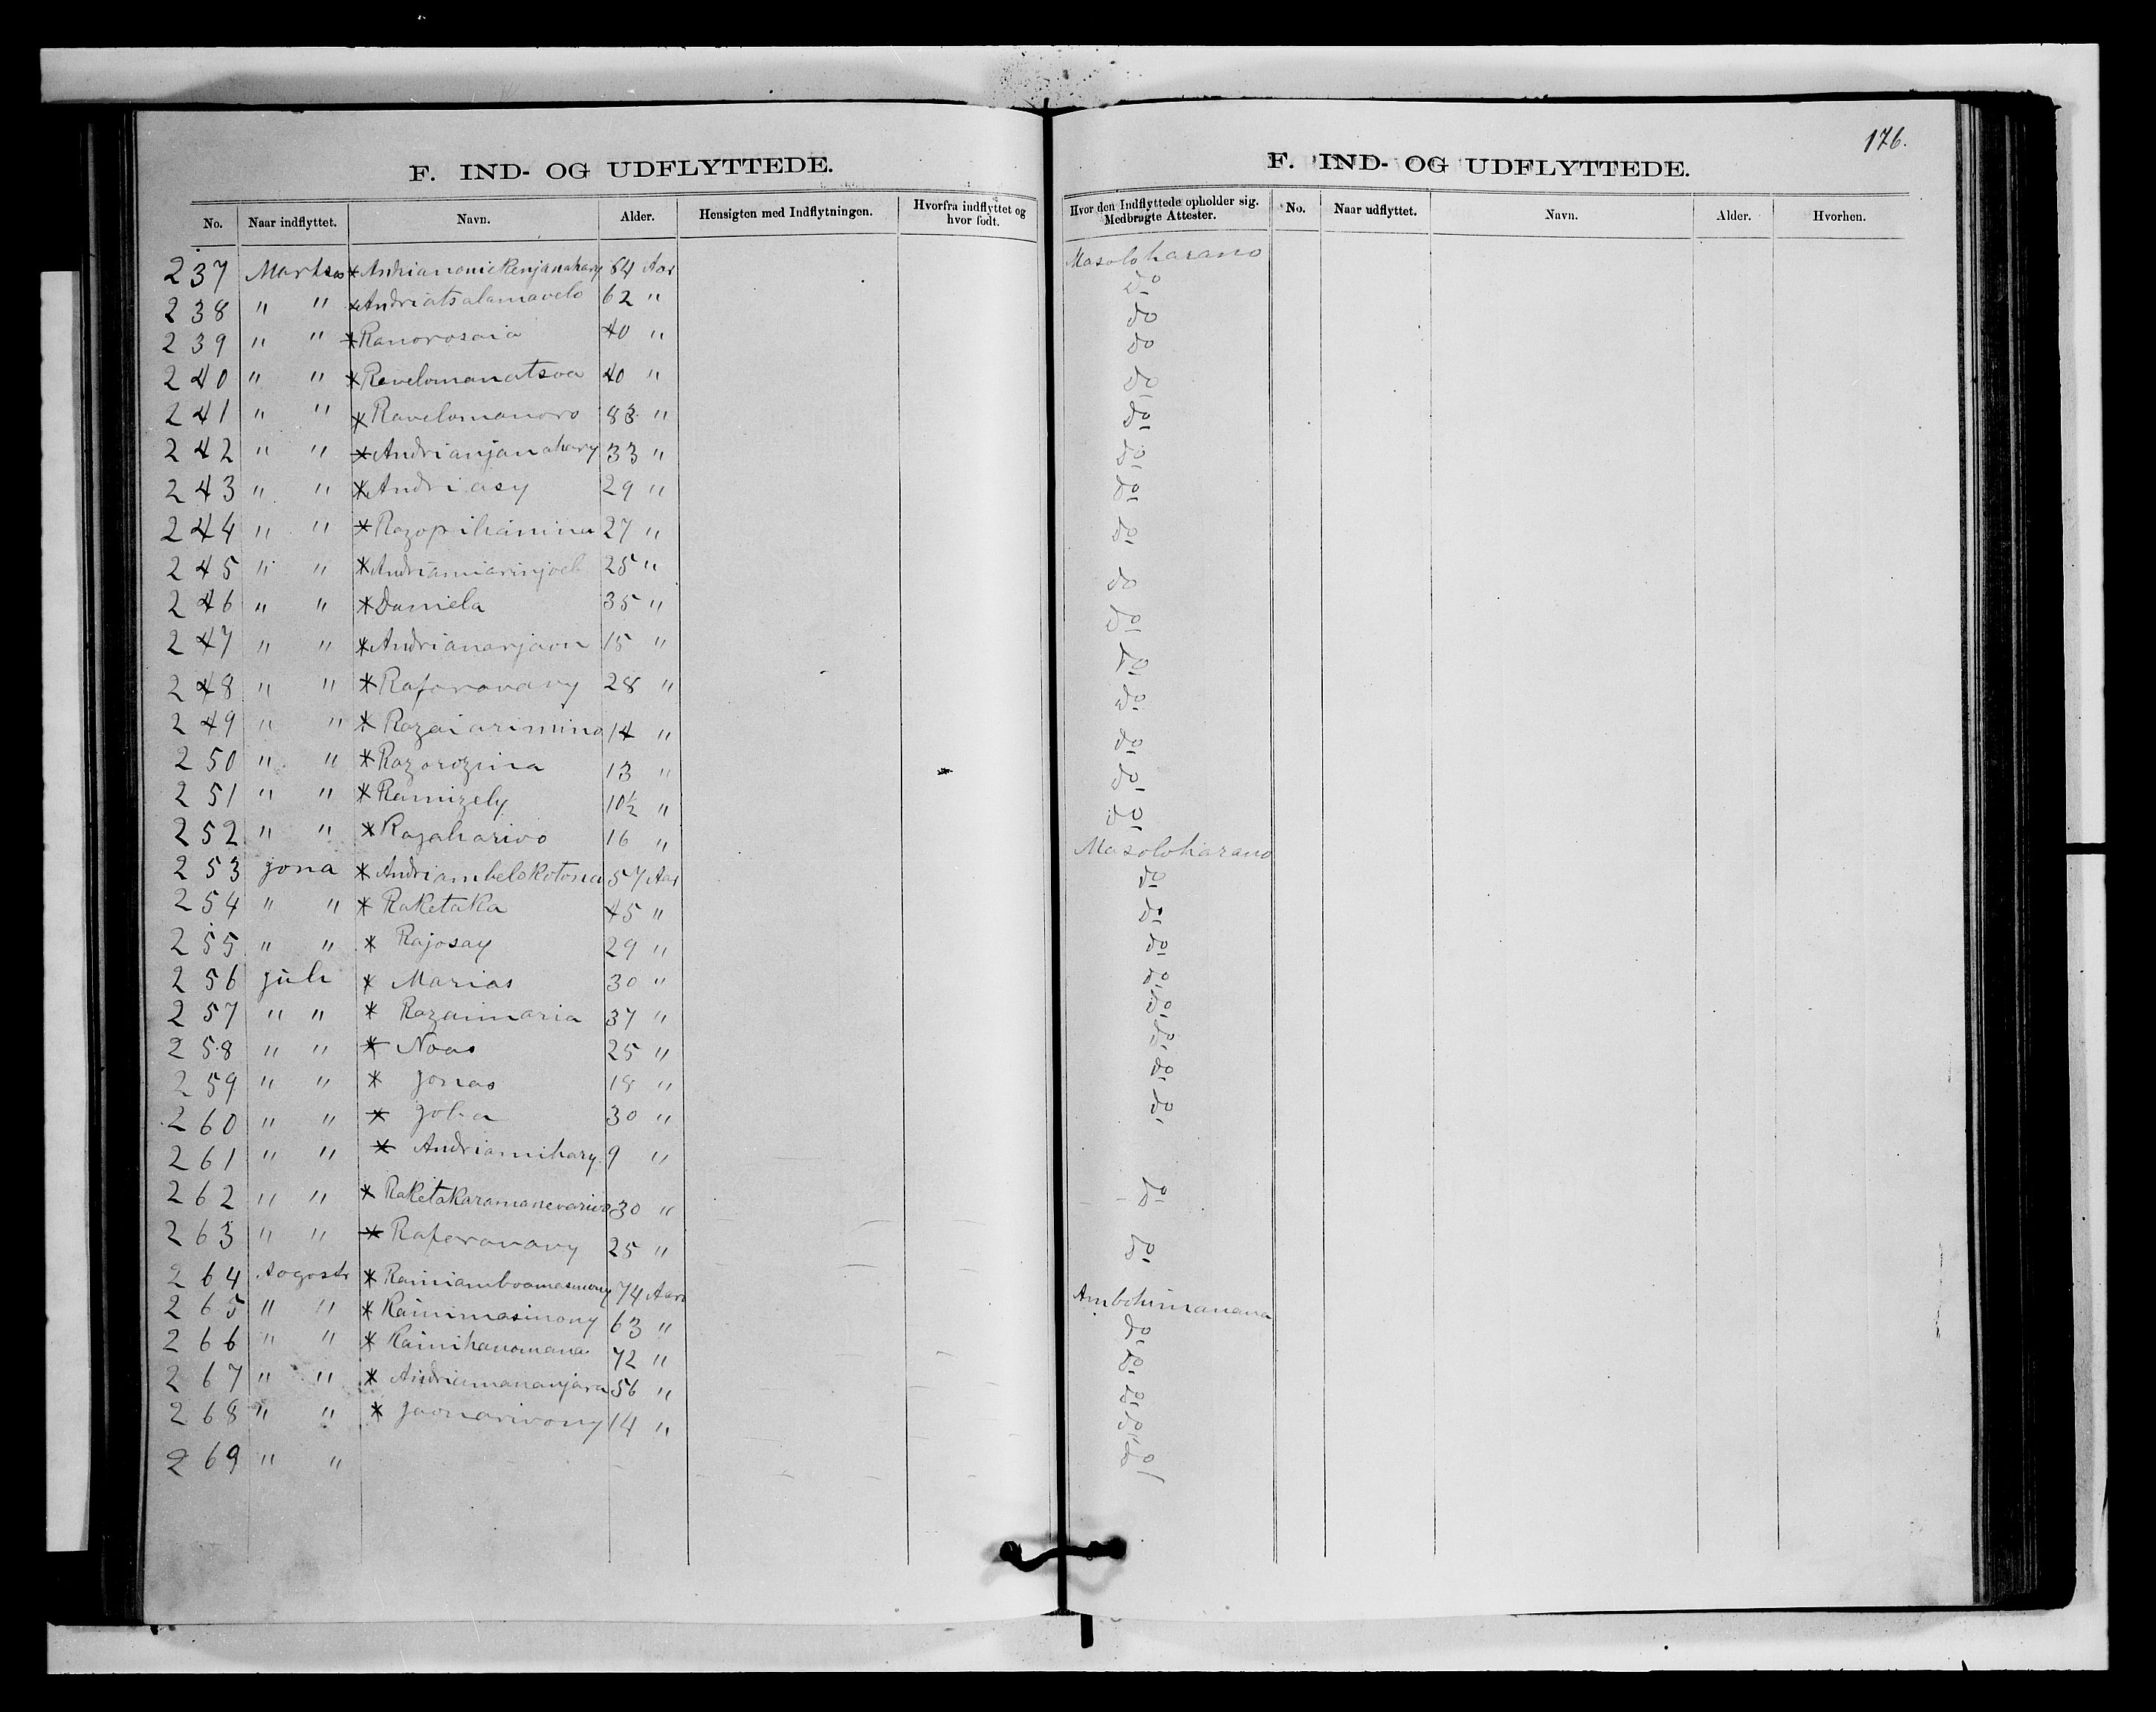 176.
F. IND- OG UDFLYTTEDE.
F. IND- OG UDFLYTTEDE.
No. Naar indflyttet. Navn. Alder. Hensigten med Indflytningen. Hvorfra indflyttet og hvor født. Hvor den Indflyttede opholder sig. Medbragte Attester. No. Naar udflyttet. Navn. Alder. Hvorhen.
237 64 Aar Masoloharano
238 " " *Andriatsalamavelo 62 " do
239 " " *Ranorosoia 40 " do
240 " " *Ravelomanatsoa 40 " do
241 " " *Ravelomanoro 83 " do
242 " " *Andrianjanahary 33 " do
243 " " *Andriasy 29 " do
244 " " * 27 " do
245 " " * 25 " do
246 " " *Daniela 35 " do
247 " " *Andrianarjaon 15 " do
248 " " *Rafaravavy 28 " do
249 " " *Razaiarimino 14 " do
250 " " *Razorozina 13 " do
251 " " *Ramizely 10½ " do
252 " " *Razaharivo 16 " do
253 Jona *Andriambelokotona 57 Aar Masoloharano
254 " " * Raketaka 45 " do
255 " " * Rajosay 29 " do
256 Juli * Marias 30 " do
257 " " * Razaimaria 37 " do
258 " " * Noas 25 " do
259 " " * Jonas 18 " do
260 " " * Joba 30 " do
261 " " * Andriamihary 9 " do
262 " " * Raketakaramanevarivo 30 " do
263 " " * Rafaravavy 25 " do
264 Aogosto * 74 Aar Ambohimanana
265 " " * Rainimasinony 63 " do
266 " " * Rainihanomana 72 " do
267 " " * Andriamananjara 56 " do
268 " " * Jaonarivony 14 " do
269 " " do